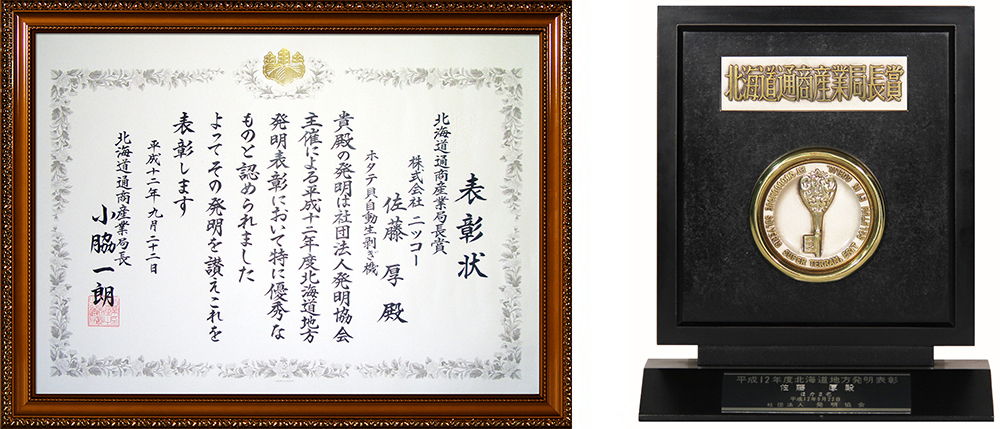 表彰状
北海道通商産業局長賞
株式会社 ニッコー
佐藤 厚 殿
ホタテ貝自動生剥ぎ機
貴殿の発明は社団法人発明協会
主催による平成十二年度北海道地方
発明表彰において特に優秀な
ものと認められました
よってその発明を讃えこれを
表彰します
平成十二年九月二十二日
北海道通商産業局長
小脇一朗
北海道通商産業局長賞
平成12年度北海道地方発明表彰
佐藤 厚殿
ほか2名
平成12年9月22日
社団法人 発明協会